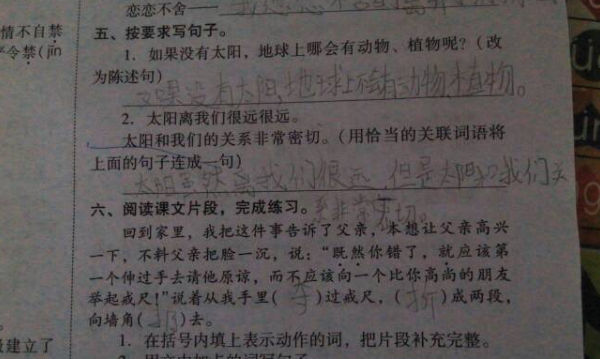 恋恋不舍——
情不自禁
令禁(jīn
五、按要求写句子。
1. 如果没有太阳，地球上哪会有动物、植物呢？(改
为陈述句)
如果没有太阳,地球上不会有动物、植物。
2. 太阳离我们很远很远。
太阳和我们的关系非常密切。(用恰当的关联词语将
上面的句子连成一句)
太阳虽然离我们很远,但是太阳和我们关
系非常密切。
六、阅读课文片段，完成练习。
回到家里，我把这件事告诉了父亲，本想让父亲高兴
一下，不料父亲把脸一沉，说：“既然你错了，就应该第
一个伸过手去请他原谅，而不应该向一个比你高尚的朋友
举起戒尺！”说着从我手里(夺)过戒尺，(折)成两段，
向墙角(扔)去。
1. 在括号内填上表示动作的词，把片段补充完整。
建立了